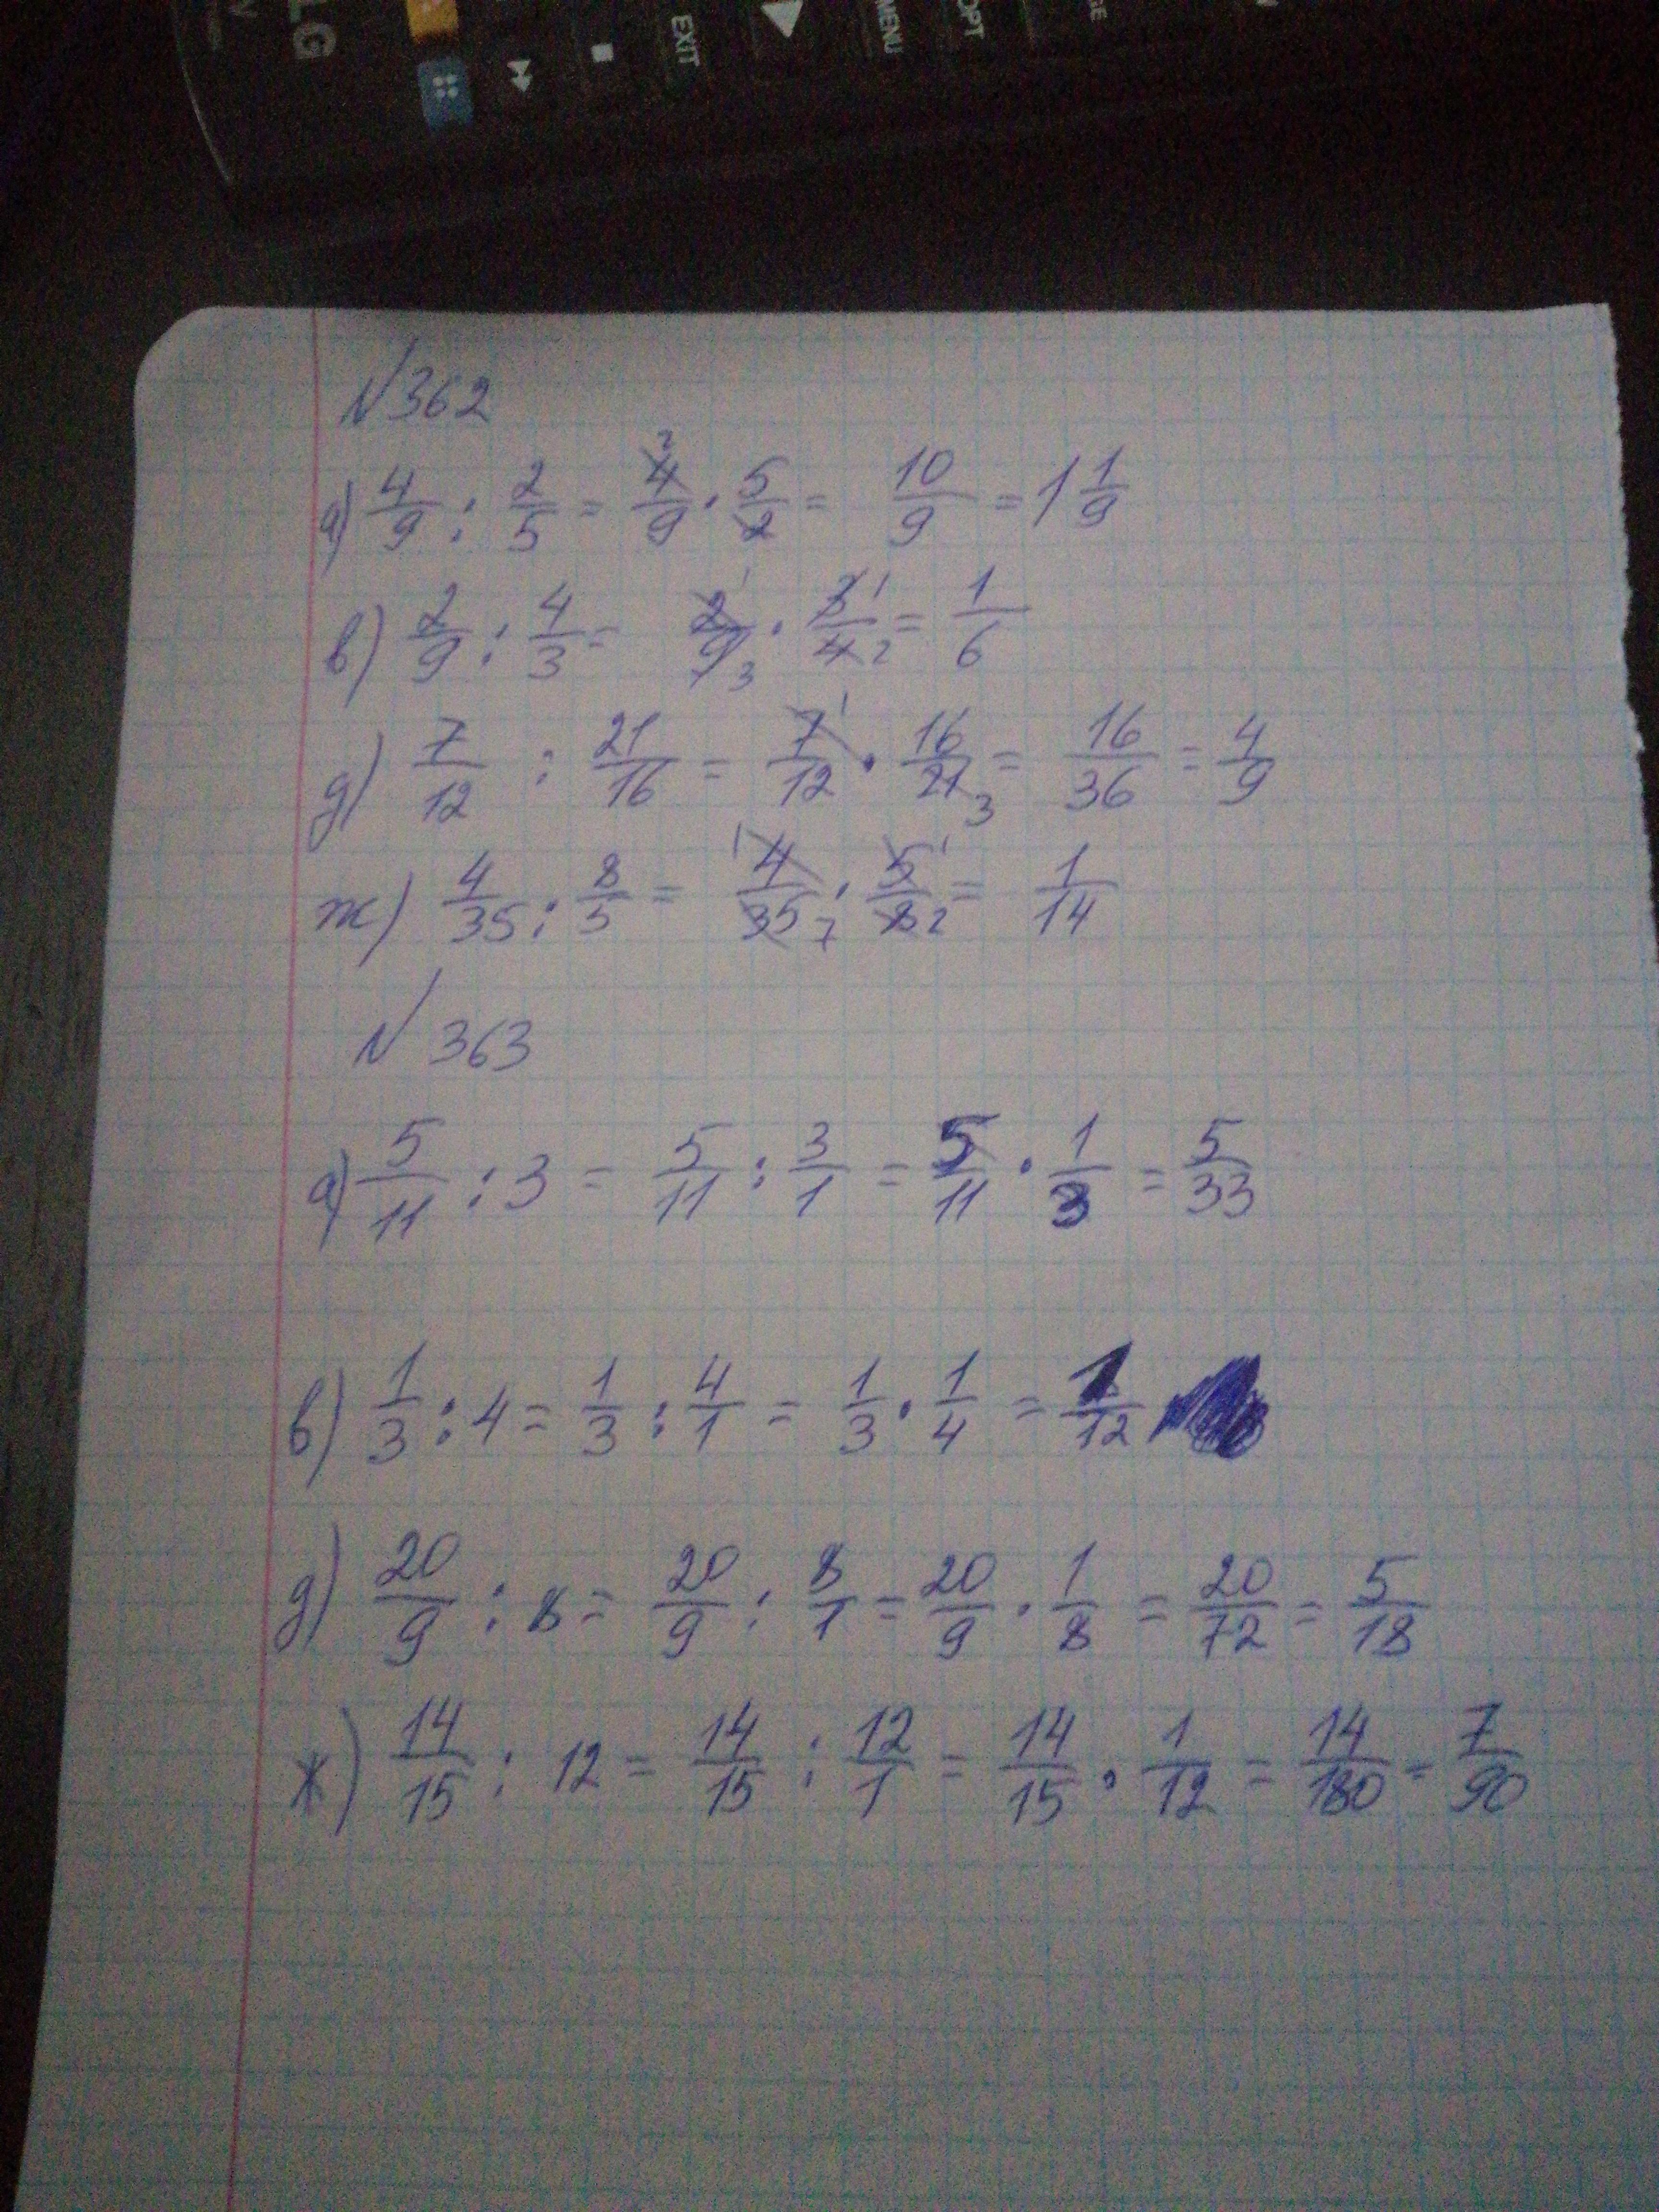 LG
EXIT
MENU
N 362
а) 4/9 : 2/5 = 4/9 2 · 5/2 = 10/9 = 1 1/9
в) 2/9 : 4/3 = 2/9 1 3 · 3/4 1 2 = 1/6
д) 7/12 : 21/16 = 7/12 1 · 16/21 3 = 16/36 = 4/9
ж) 4/35 : 8/5 = 4/35 1 7 · 5/8 1 2 = 1/14
N 363
а) 5/11 : 3 = 5/11 : 3/1 = 5/11 · 1/3 = 5/33
в) 1/3 : 4 = 1/3 : 4/1 = 1/3 · 1/4 = 1/12
д) 20/9 : 8 = 20/9 : 8/1 = 20/9 · 1/8 = 20/72 = 5/18
ж) 14/15 : 12 = 14/15 : 12/1 = 14/15 · 1/12 = 14/180 = 7/90